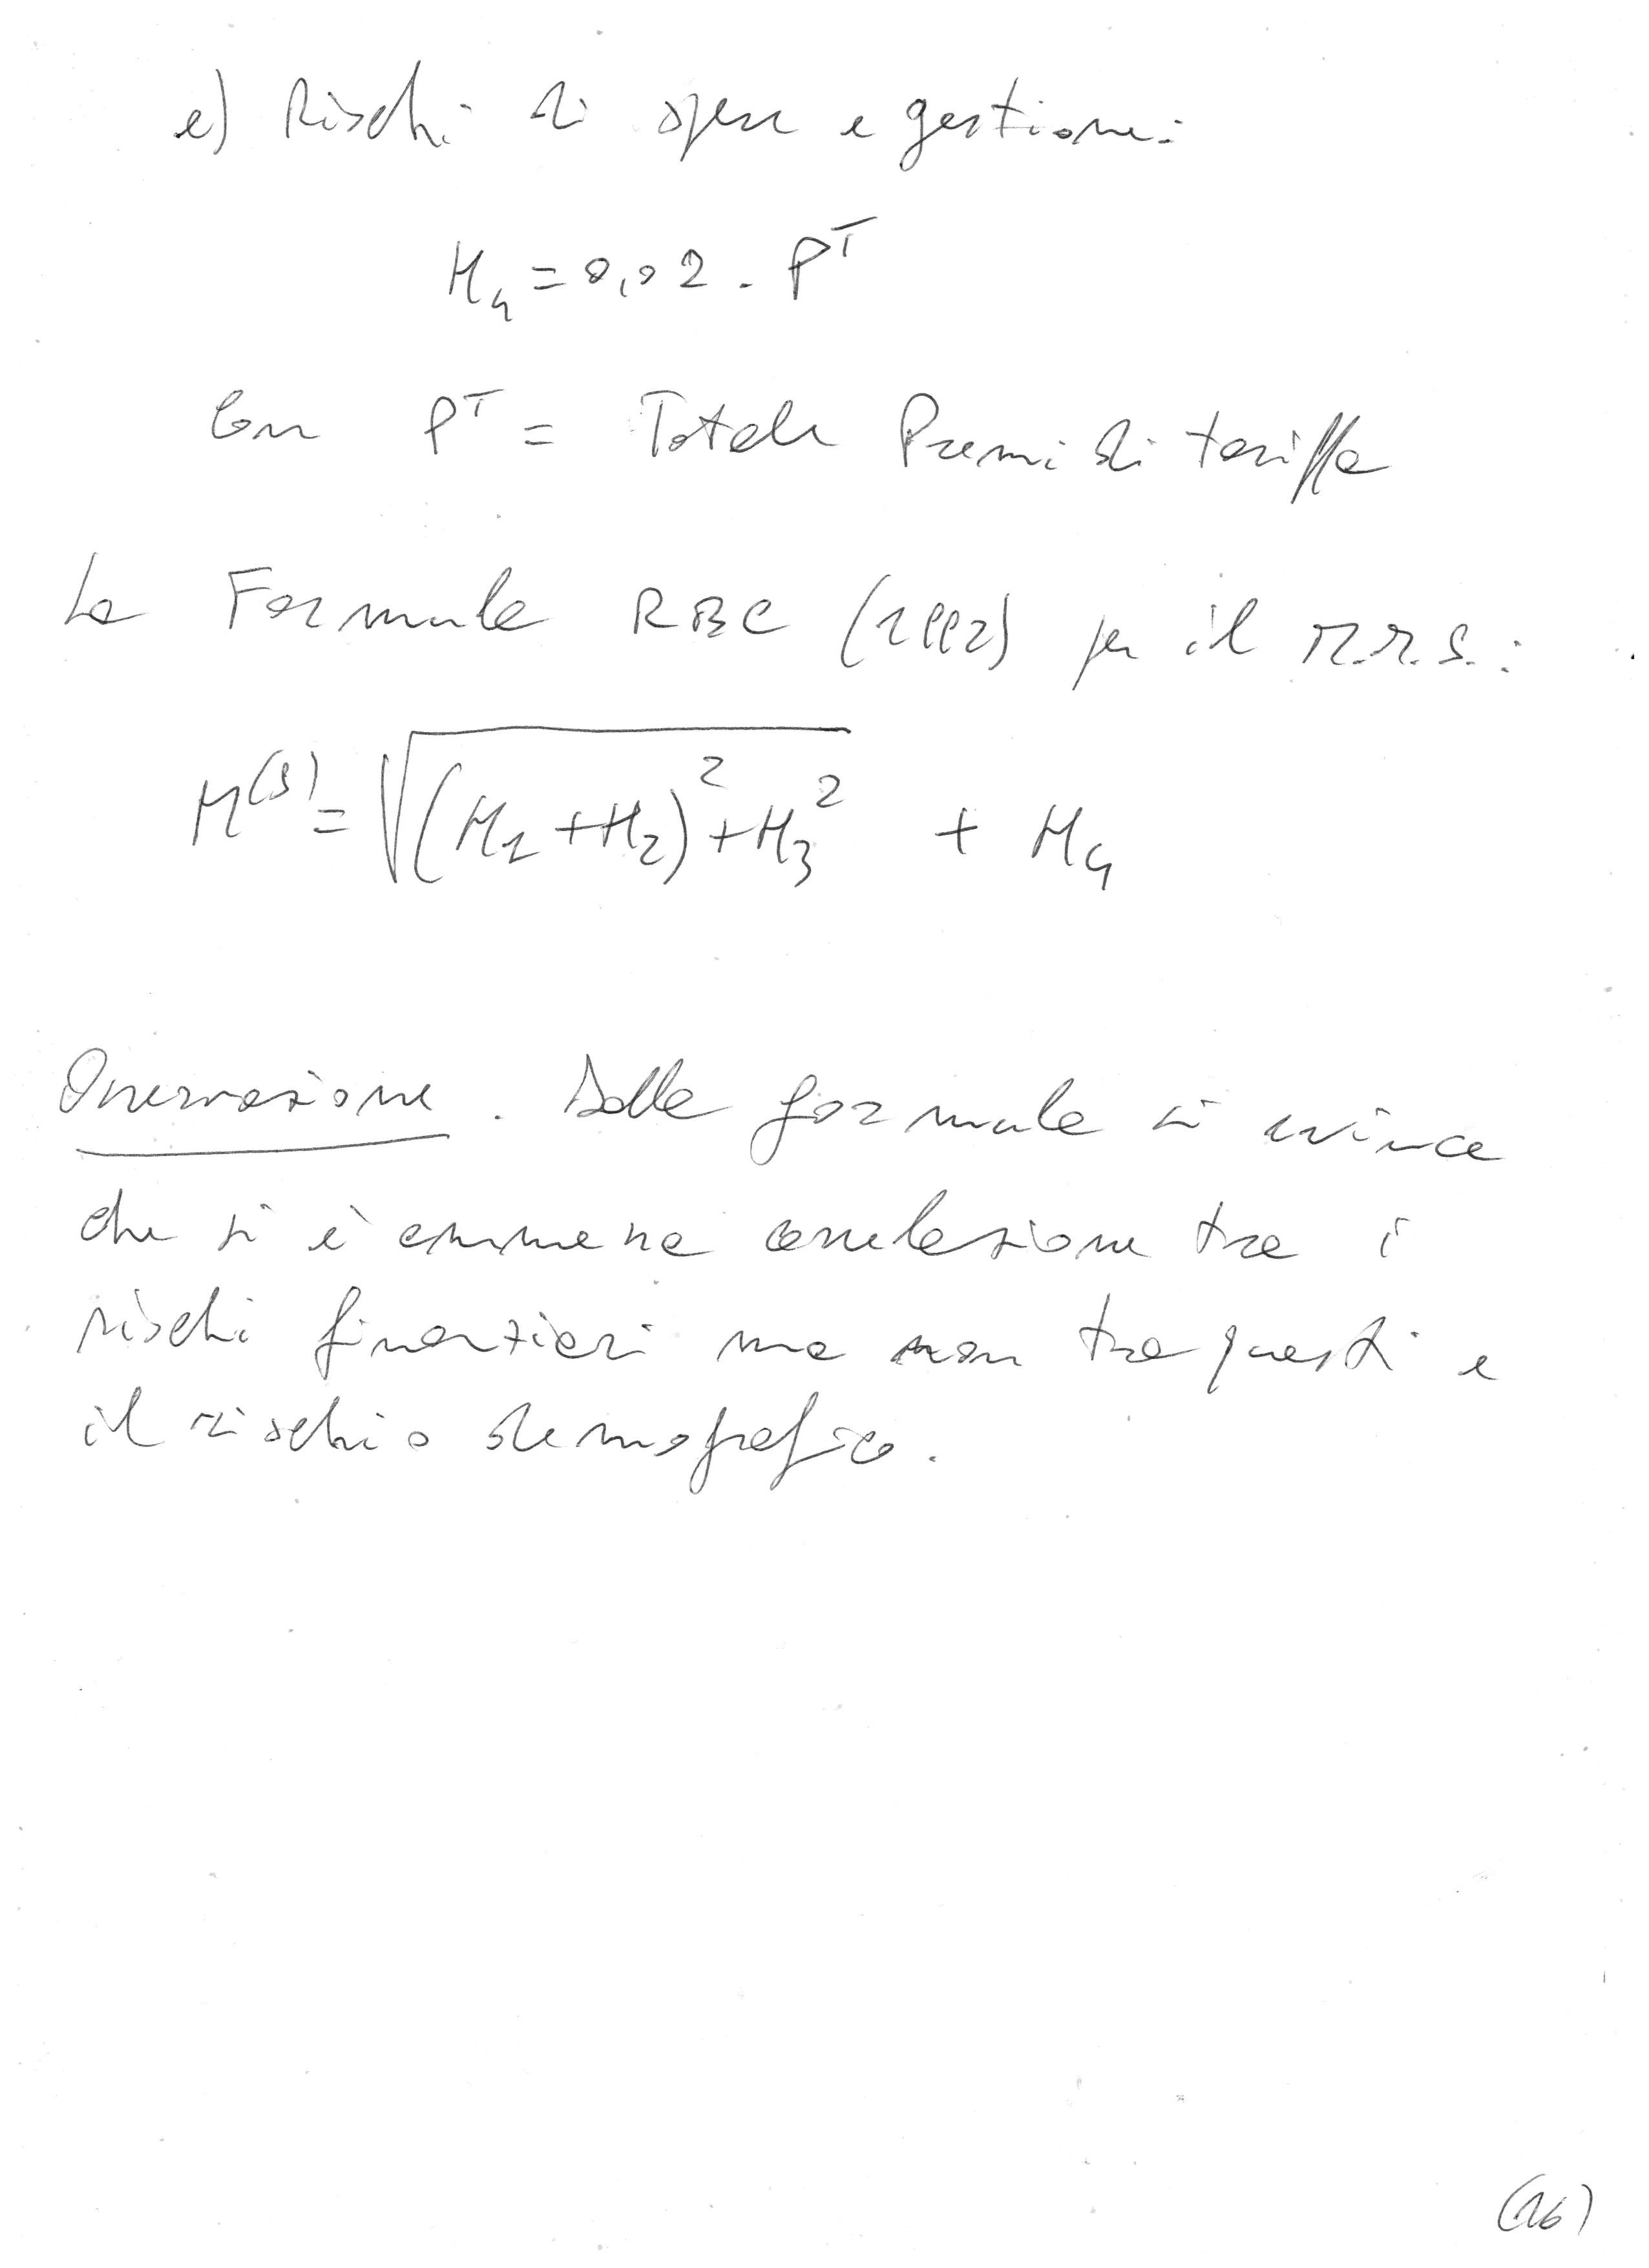 e) Rischi di spese e gestione:
M₄ = 0,02 · Pᵀ
Con Pᵀ = Totale Premi di tariffa
La Formula RBC (1992) per il M.M.S.:
M⁽ˢ⁾ = √((M₁ + M₂)² + M₃²) + M₄
Osservazione. Dalla formula si evince
che si è ammessa correlazione tra i
rischi finanziari ma non tra questi e
il rischio demografico.
(16)